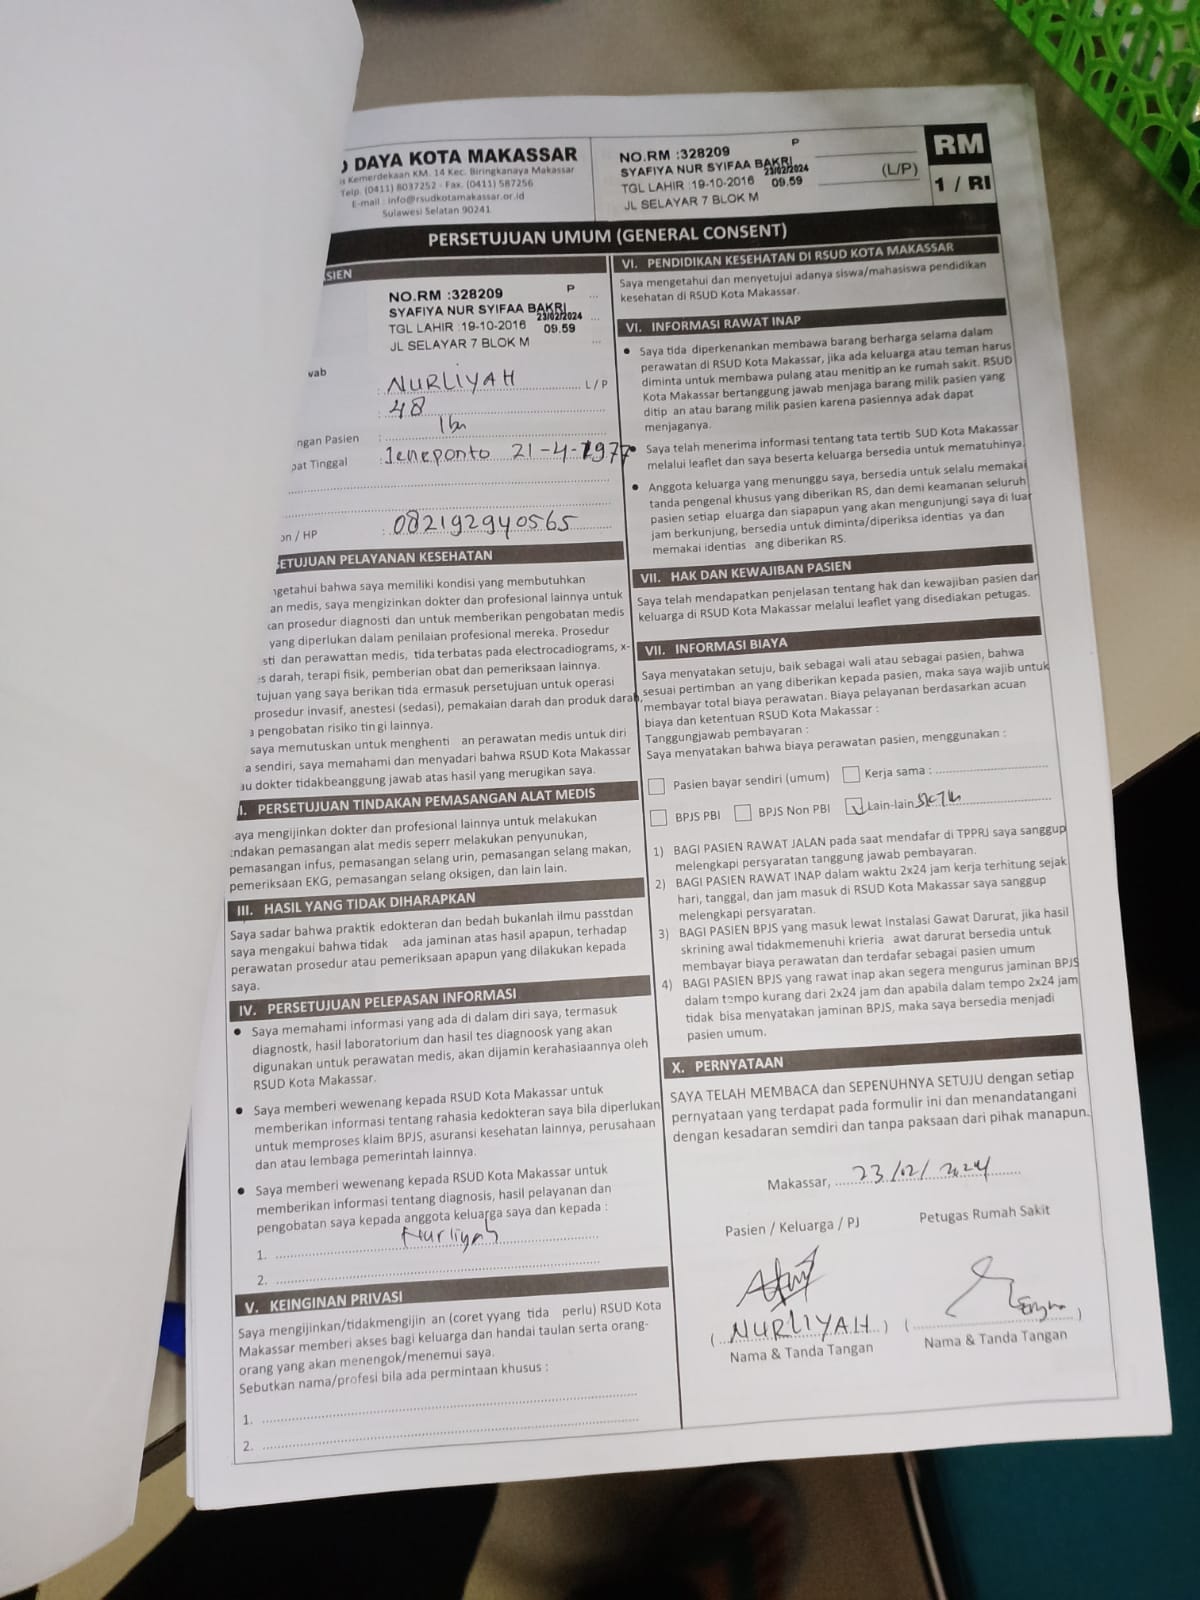 DAYA KOTA MAKASSAR
s Kemerdekaan KM. 14 Kec. Biringkanaya Makassar
Telp. (0411) 8037252 - Fax. (0411) 587256
E-mail : info@rsudkotamakassar.or.id
Sulawesi Selatan 90241
P
NO.RM :328209
SYAFIYA NUR SYIFAA BAKRI
23/02/2024
TGL LAHIR :19-10-2016 09.59
JL SELAYAR 7 BLOK M
(L/P)
RM
1 / RI
PERSETUJUAN UMUM (GENERAL CONSENT)
SIEN
NO.RM :328209 P
SYAFIYA NUR SYIFAA BAKRI
23/02/2024
TGL LAHIR :19-10-2016 09.59
JL SELAYAR 7 BLOK M
wab
: NURLIYAH L/P
: 48
ngan Pasien : Ibu
pat Tinggal : Jeneponto 21-4-1977
on / HP : 082192940565
ETUJUAN PELAYANAN KESEHATAN
ngetahui bahwa saya memiliki kondisi yang membutuhkan
an medis, saya mengizinkan dokter dan profesional lainnya untuk
kan prosedur diagnosti dan untuk memberikan pengobatan medis
yang diperlukan dalam penilaian profesional mereka. Prosedur
sti dan perawattan medis, tida terbatas pada electrocadiograms, x-
s darah, terapi fisik, pemberian obat dan pemeriksaan lainnya.
tujuan yang saya berikan tida ermasuk persetujuan untuk operasi
prosedur invasif, anestesi (sedasi), pemakaian darah dan produk darah,
a pengobatan risiko tin gi lainnya.
saya memutuskan untuk menghenti an perawatan medis untuk diri
a sendiri, saya memahami dan menyadari bahwa RSUD Kota Makassar
au dokter tidakbeanggung jawab atas hasil yang merugikan saya.
I. PERSETUJUAN TINDAKAN PEMASANGAN ALAT MEDIS
aya mengijinkan dokter dan profesional lainnya untuk melakukan
ndakan pemasangan alat medis seperr melakukan penyunukan,
pemasangan infus, pemasangan selang urin, pemasangan selang makan,
pemeriksaan EKG, pemasangan selang oksigen, dan lain lain.
III. HASIL YANG TIDAK DIHARAPKAN
Saya sadar bahwa praktik edokteran dan bedah bukanlah ilmu passtdan
saya mengakui bahwa tidak ada jaminan atas hasil apapun, terhadap
perawatan prosedur atau pemeriksaan apapun yang dilakukan kepada
saya.
IV. PERSETUJUAN PELEPASAN INFORMASI
• Saya memahami informasi yang ada di dalam diri saya, termasuk
diagnostk, hasil laboratorium dan hasil tes diagnoosk yang akan
digunakan untuk perawatan medis, akan dijamin kerahasiaannya oleh
RSUD Kota Makassar.
• Saya memberi wewenang kepada RSUD Kota Makassar untuk
memberikan informasi tentang rahasia kedokteran saya bila diperlukan
untuk memproses klaim BPJS, asuransi kesehatan lainnya, perusahaan
dan atau lembaga pemerintah lainnya.
• Saya memberi wewenang kepada RSUD Kota Makassar untuk
memberikan informasi tentang diagnosis, hasil pelayanan dan
pengobatan saya kepada anggota keluarga saya dan kepada :
1. Nurliyah
2.
V. KEINGINAN PRIVASI
Saya mengijinkan/tidakmengijin an (coret yyang tida perlu) RSUD Kota
Makassar memberi akses bagi keluarga dan handai taulan serta orang-
orang yang akan menengok/menemui saya.
Sebutkan nama/profesi bila ada permintaan khusus :
1.
2.
VI. PENDIDIKAN KESEHATAN DI RSUD KOTA MAKASSAR
Saya mengetahui dan menyetujui adanya siswa/mahasiswa pendidikan
kesehatan di RSUD Kota Makassar.
VI. INFORMASI RAWAT INAP
• Saya tida diperkenankan membawa barang berharga selama dalam
perawatan di RSUD Kota Makassar, jika ada keluarga atau teman harus
diminta untuk membawa pulang atau menitip an ke rumah sakit. RSUD
Kota Makassar bertanggung jawab menjaga barang milik pasien yang
ditip an atau barang milik pasien karena pasiennya adak dapat
menjaganya.
• Saya telah menerima informasi tentang tata tertib SUD Kota Makassar
melalui leaflet dan saya beserta keluarga bersedia untuk mematuhinya.
• Anggota keluarga yang menunggu saya, bersedia untuk selalu memakai
tanda pengenal khusus yang diberikan RS, dan demi keamanan seluruh
pasien setiap eluarga dan siapapun yang akan mengunjungi saya di luar
jam berkunjung, bersedia untuk diminta/diperiksa identias ya dan
memakai identias ang diberikan RS.
VII. HAK DAN KEWAJIBAN PASIEN
Saya telah mendapatkan penjelasan tentang hak dan kewajiban pasien dan
keluarga di RSUD Kota Makassar melalui leaflet yang disediakan petugas.
VII. INFORMASI BIAYA
Saya menyatakan setuju, baik sebagai wali atau sebagai pasien, bahwa
sesuai pertimban an yang diberikan kepada pasien, maka saya wajib untuk
membayar total biaya perawatan. Biaya pelayanan berdasarkan acuan
biaya dan ketentuan RSUD Kota Makassar :
Tanggungjawab pembayaran :
Saya menyatakan bahwa biaya perawatan pasien, menggunakan :
Pasien bayar sendiri (umum) Kerja sama :
BPJS PBI BPJS Non PBI Lain-lain
1) BAGI PASIEN RAWAT JALAN pada saat mendafar di TPPRJ saya sanggup
melengkapi persyaratan tanggung jawab pembayaran.
2) BAGI PASIEN RAWAT INAP dalam waktu 2x24 jam kerja terhitung sejak
hari, tanggal, dan jam masuk di RSUD Kota Makassar saya sanggup
melengkapi persyaratan.
3) BAGI PASIEN BPJS yang masuk lewat Instalasi Gawat Darurat, jika hasil
skrining awal tidakmemenuhi krieria awat darurat bersedia untuk
membayar biaya perawatan dan terdafar sebagai pasien umum
4) BAGI PASIEN BPJS yang rawat inap akan segera mengurus jaminan BPJS
dalam tempo kurang dari 2x24 jam dan apabila dalam tempo 2x24 jam
tidak bisa menyatakan jaminan BPJS, maka saya bersedia menjadi
pasien umum.
X. PERNYATAAN
SAYA TELAH MEMBACA dan SEPENUHNYA SETUJU dengan setiap
pernyataan yang terdapat pada formulir ini dan menandatangani
dengan kesadaran semdiri dan tanpa paksaan dari pihak manapun.
Makassar, 23/02/2024
Pasien / Keluarga / PJ Petugas Rumah Sakit
( NURLIYAH ) ( )
Nama & Tanda Tangan Nama & Tanda Tangan